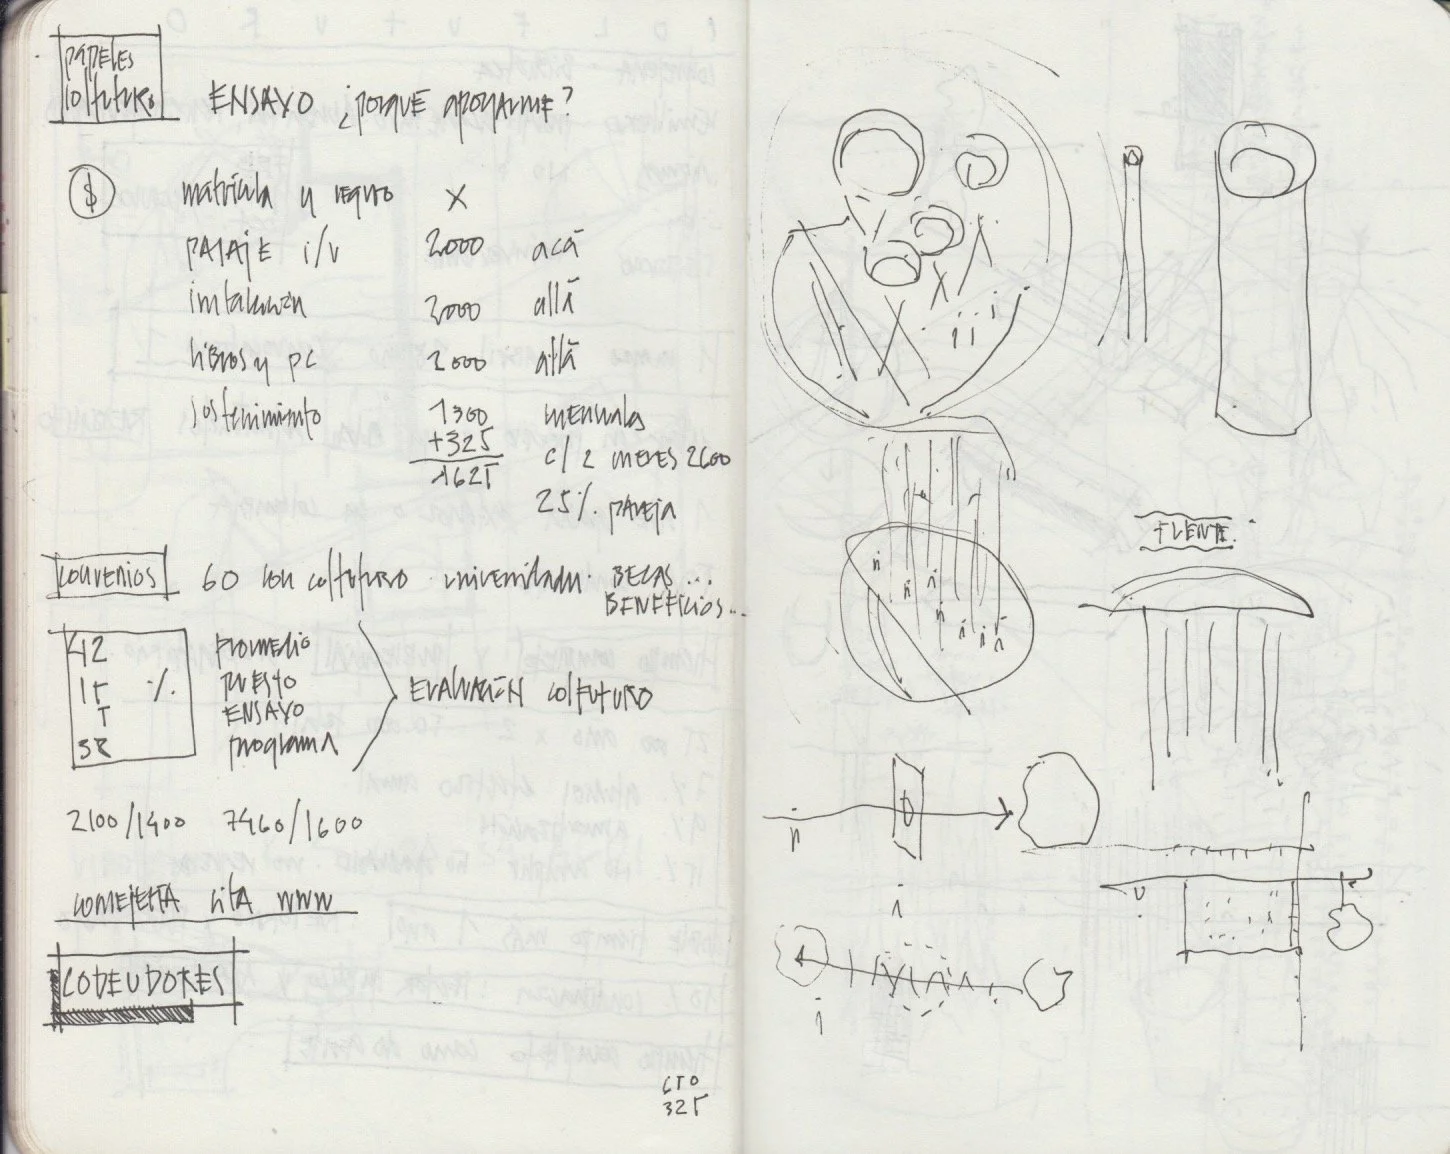 PAPELES
COLFUTURO
ENSAYO ¿PORQUÉ APOYARME?
$
matrícula y seguro X
PASAJE i/v 2000 acá
instalación 2000 allá
libros y PC 2000 allá
sostenimiento 1300 mensuales
+325 c/2 meses 2600
1625
25% pareja
CONVENIOS 60 con colfuturo · universidades · BECAS...
BENEFICIOS...
42 PROMEDIO
15 % PUESTO
5 ENSAYO
38 programa
EVALUACIÓN COLFUTURO
2100/1400 7460/1600
CONSEJERÍA cita www
CODEUDORES
CTO
325
FUENTE